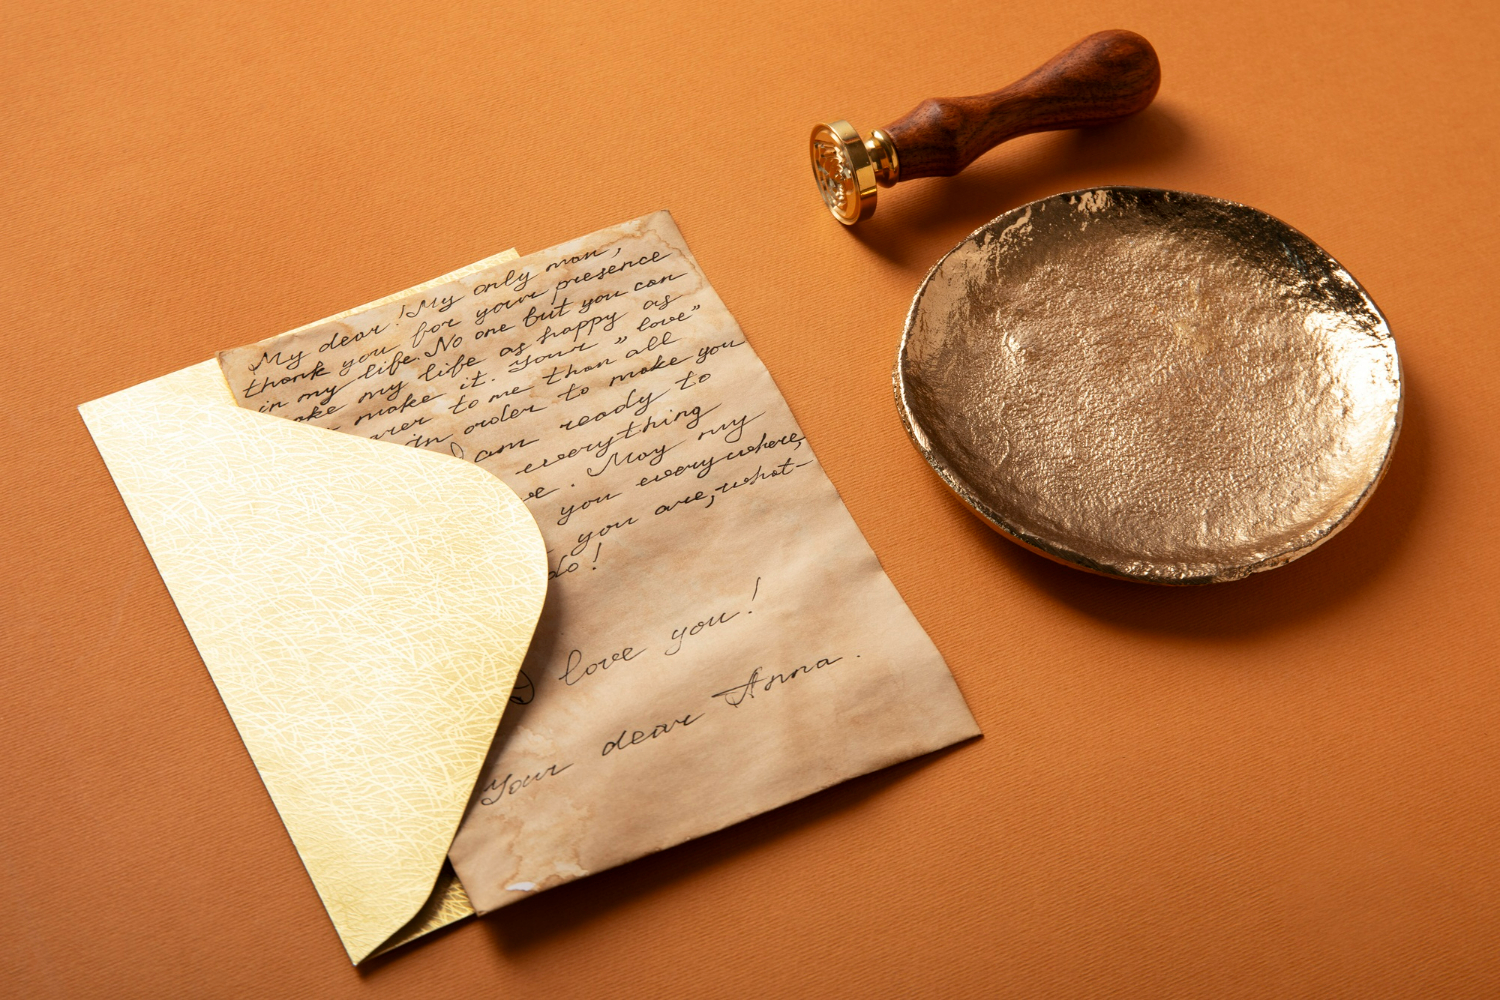 My dear! My only man,
thank you for your presence
in my life. No one but you can
make my life as happy as
make it. Your "love"
to me than all
in order to make you
I am ready to
everything
. May my
you everywhere,
you are, what-
do!
I love you!
Your dear Anna.